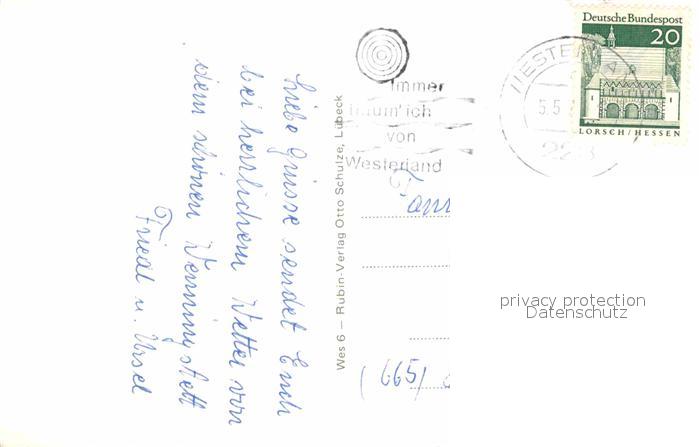 Liebe Grüsse sendet Euch
bei herrlichem Wetter von
dem schönen Wenningstedt
Friedl u. Ursel
Wes 6 – Rubin-Verlag Otto Schulze, Lübeck
Immer
träum' ich
von
Westerland
WESTERLA
5.5.
228
Deutsche Bundespost
20
LORSCH/HESSEN
Fam
(665)
privacy protection
Datenschutz